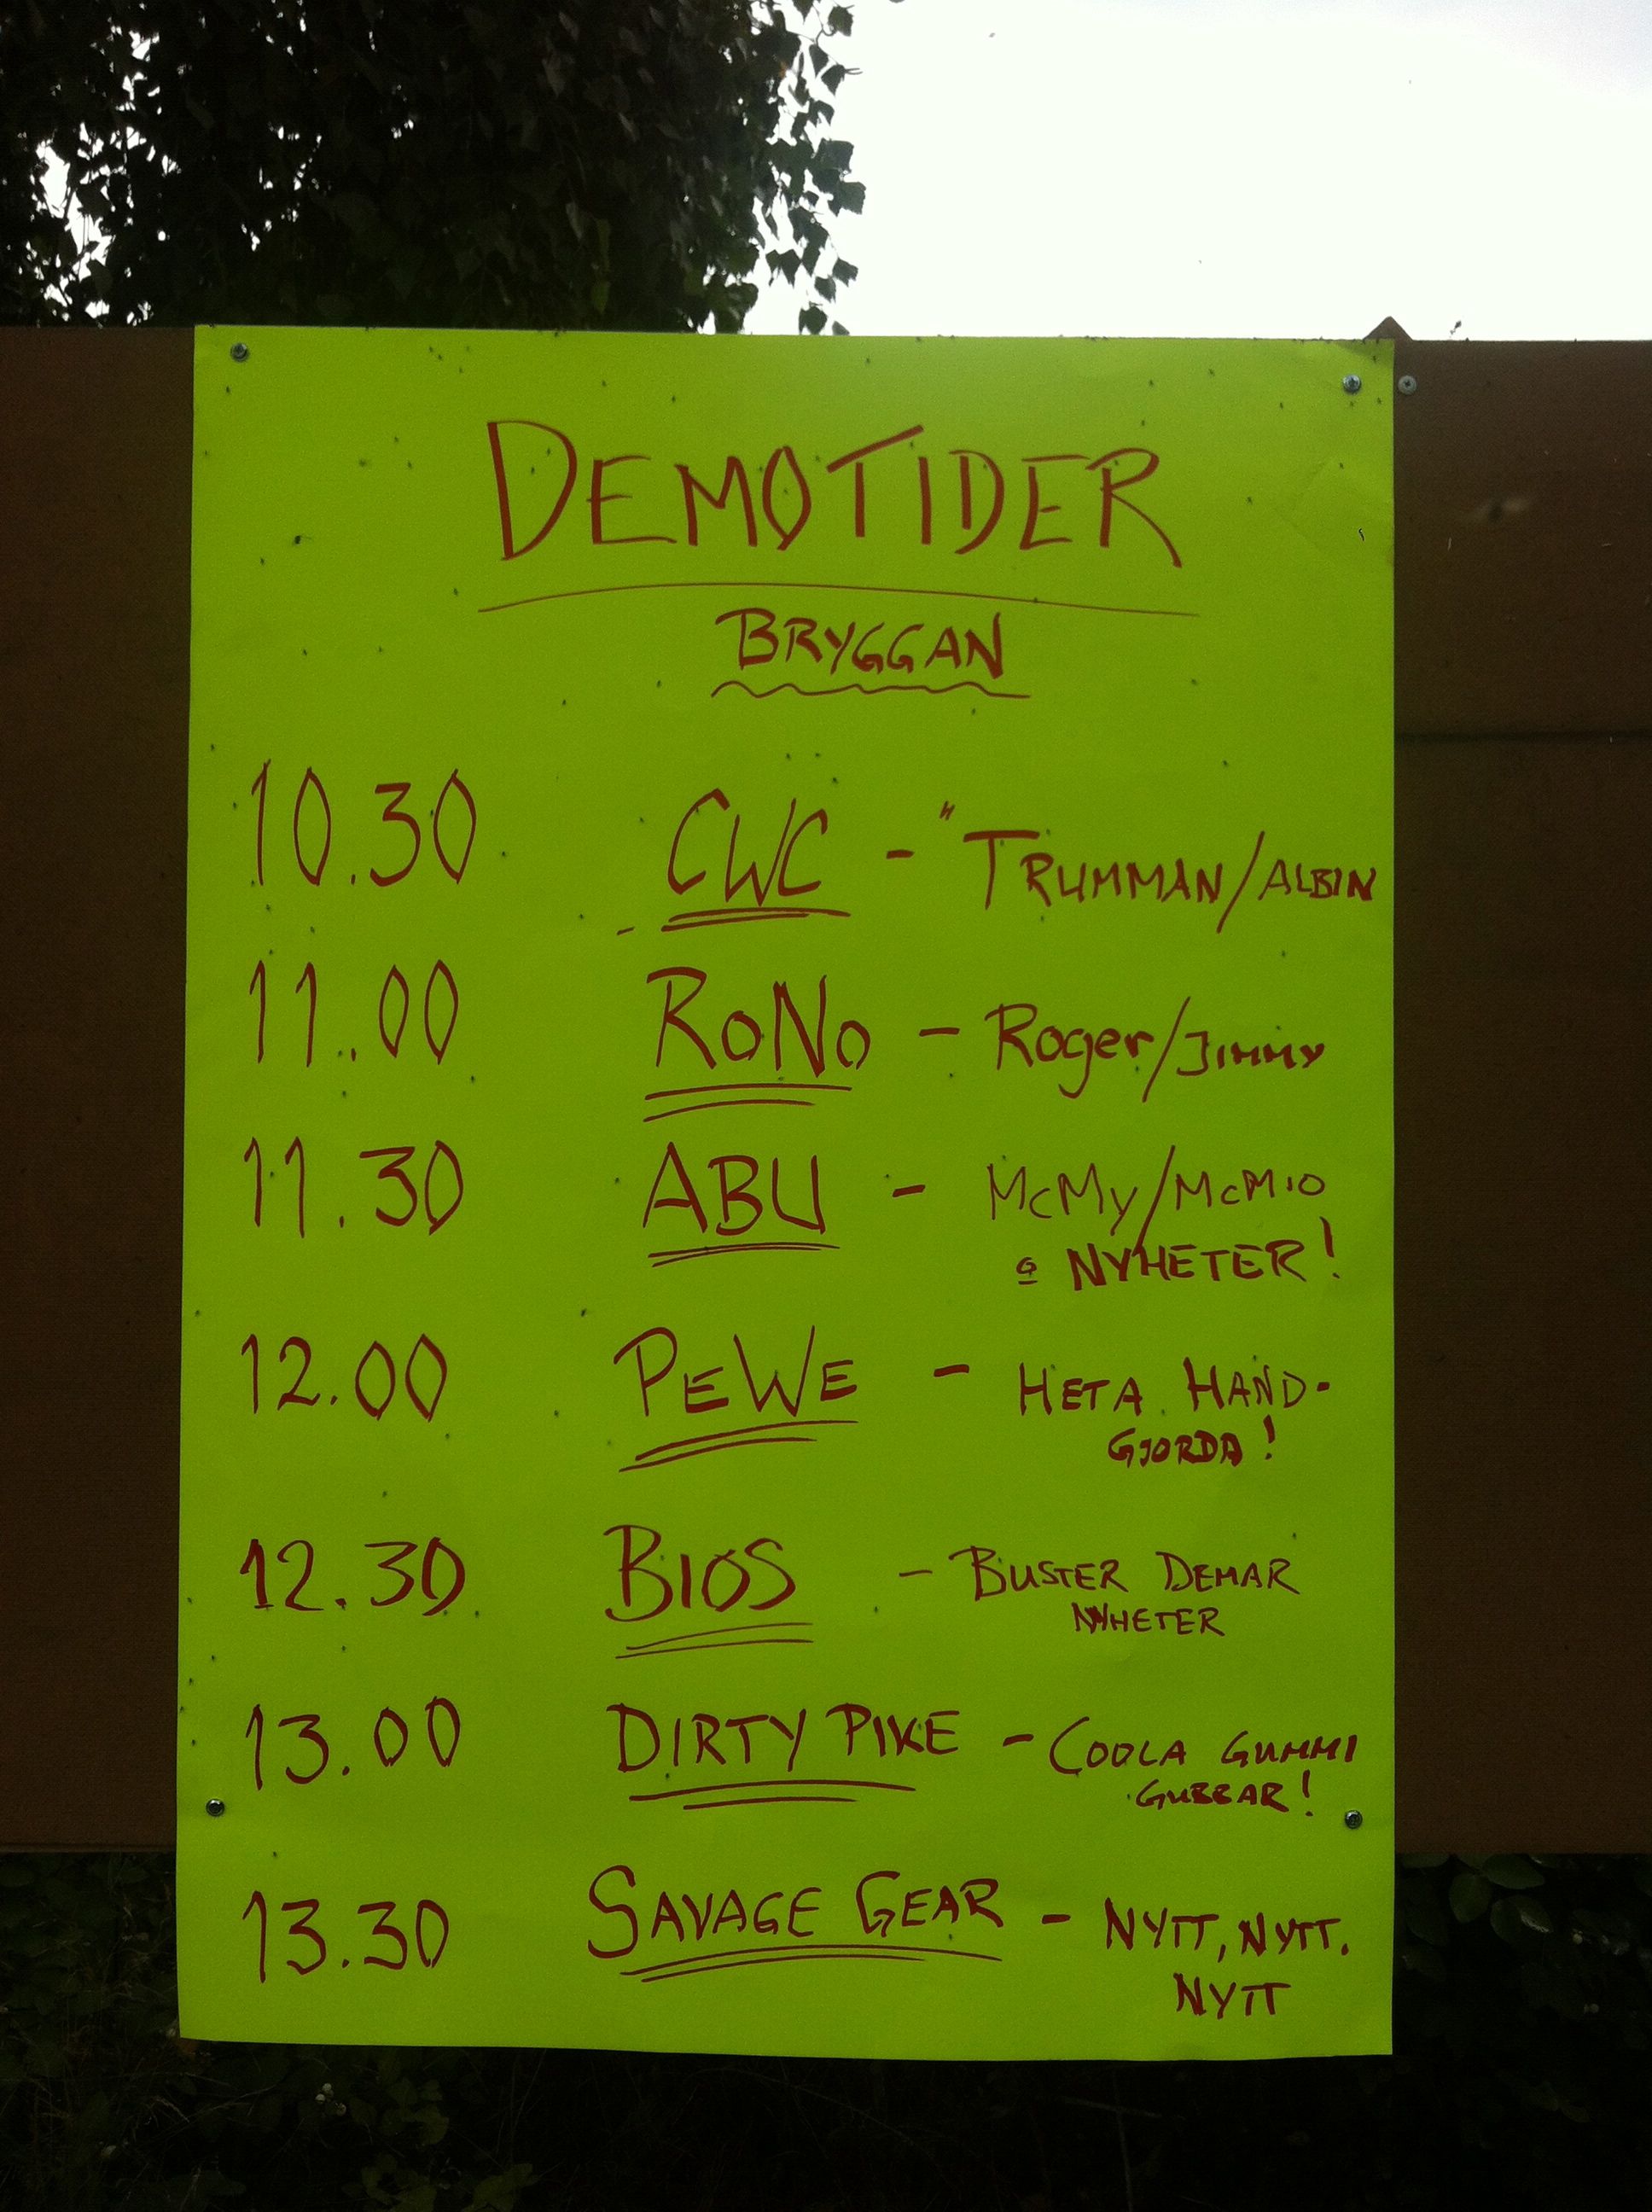 DEMOTIDER
BRYGGAN
10.30 CWC - "TRUMMAN/ALBIN
11.00 RoNo - Roger/JIMMY
11.30 ABU - McMy/McMIO
o NYHETER!
12.00 PEWE - HETA HAND-
GJORDA!
12.30 BIOS - BUSTER DEMAR
NYHETER
13.00 DIRTY PIKE - COOLA GUMMI
GUBBAR!
13.30 SAVAGE GEAR - NYTT, NYTT.
NYTT